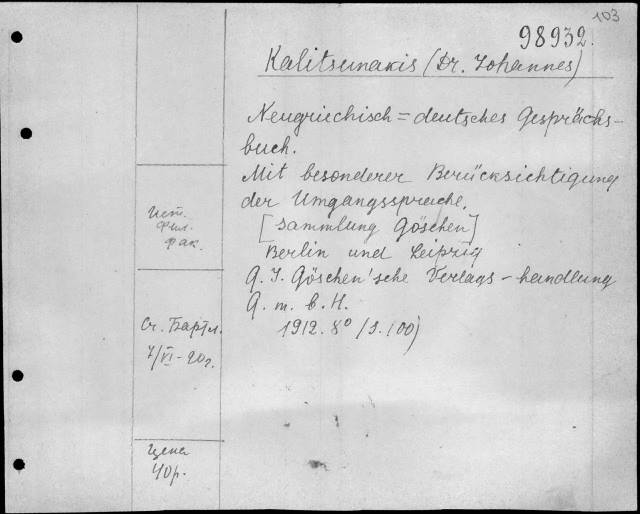 103
98932.
Kalitsunakis (Dr. Johannes)
Neugriechisch = deutsches Gesprächs-
buch.
Mit besonderer Berücksichtigung
der Umgangssprache.
[Sammlung Göschen]
Berlin und Leipzig
G. J. Göschen'sche Verlags-handlung
G. m. b. H.
1912. 8° (S. 100)
Ист.
Фил.
фак.
Ст. Бартл.
7/VI-20г.
Цена
40р.